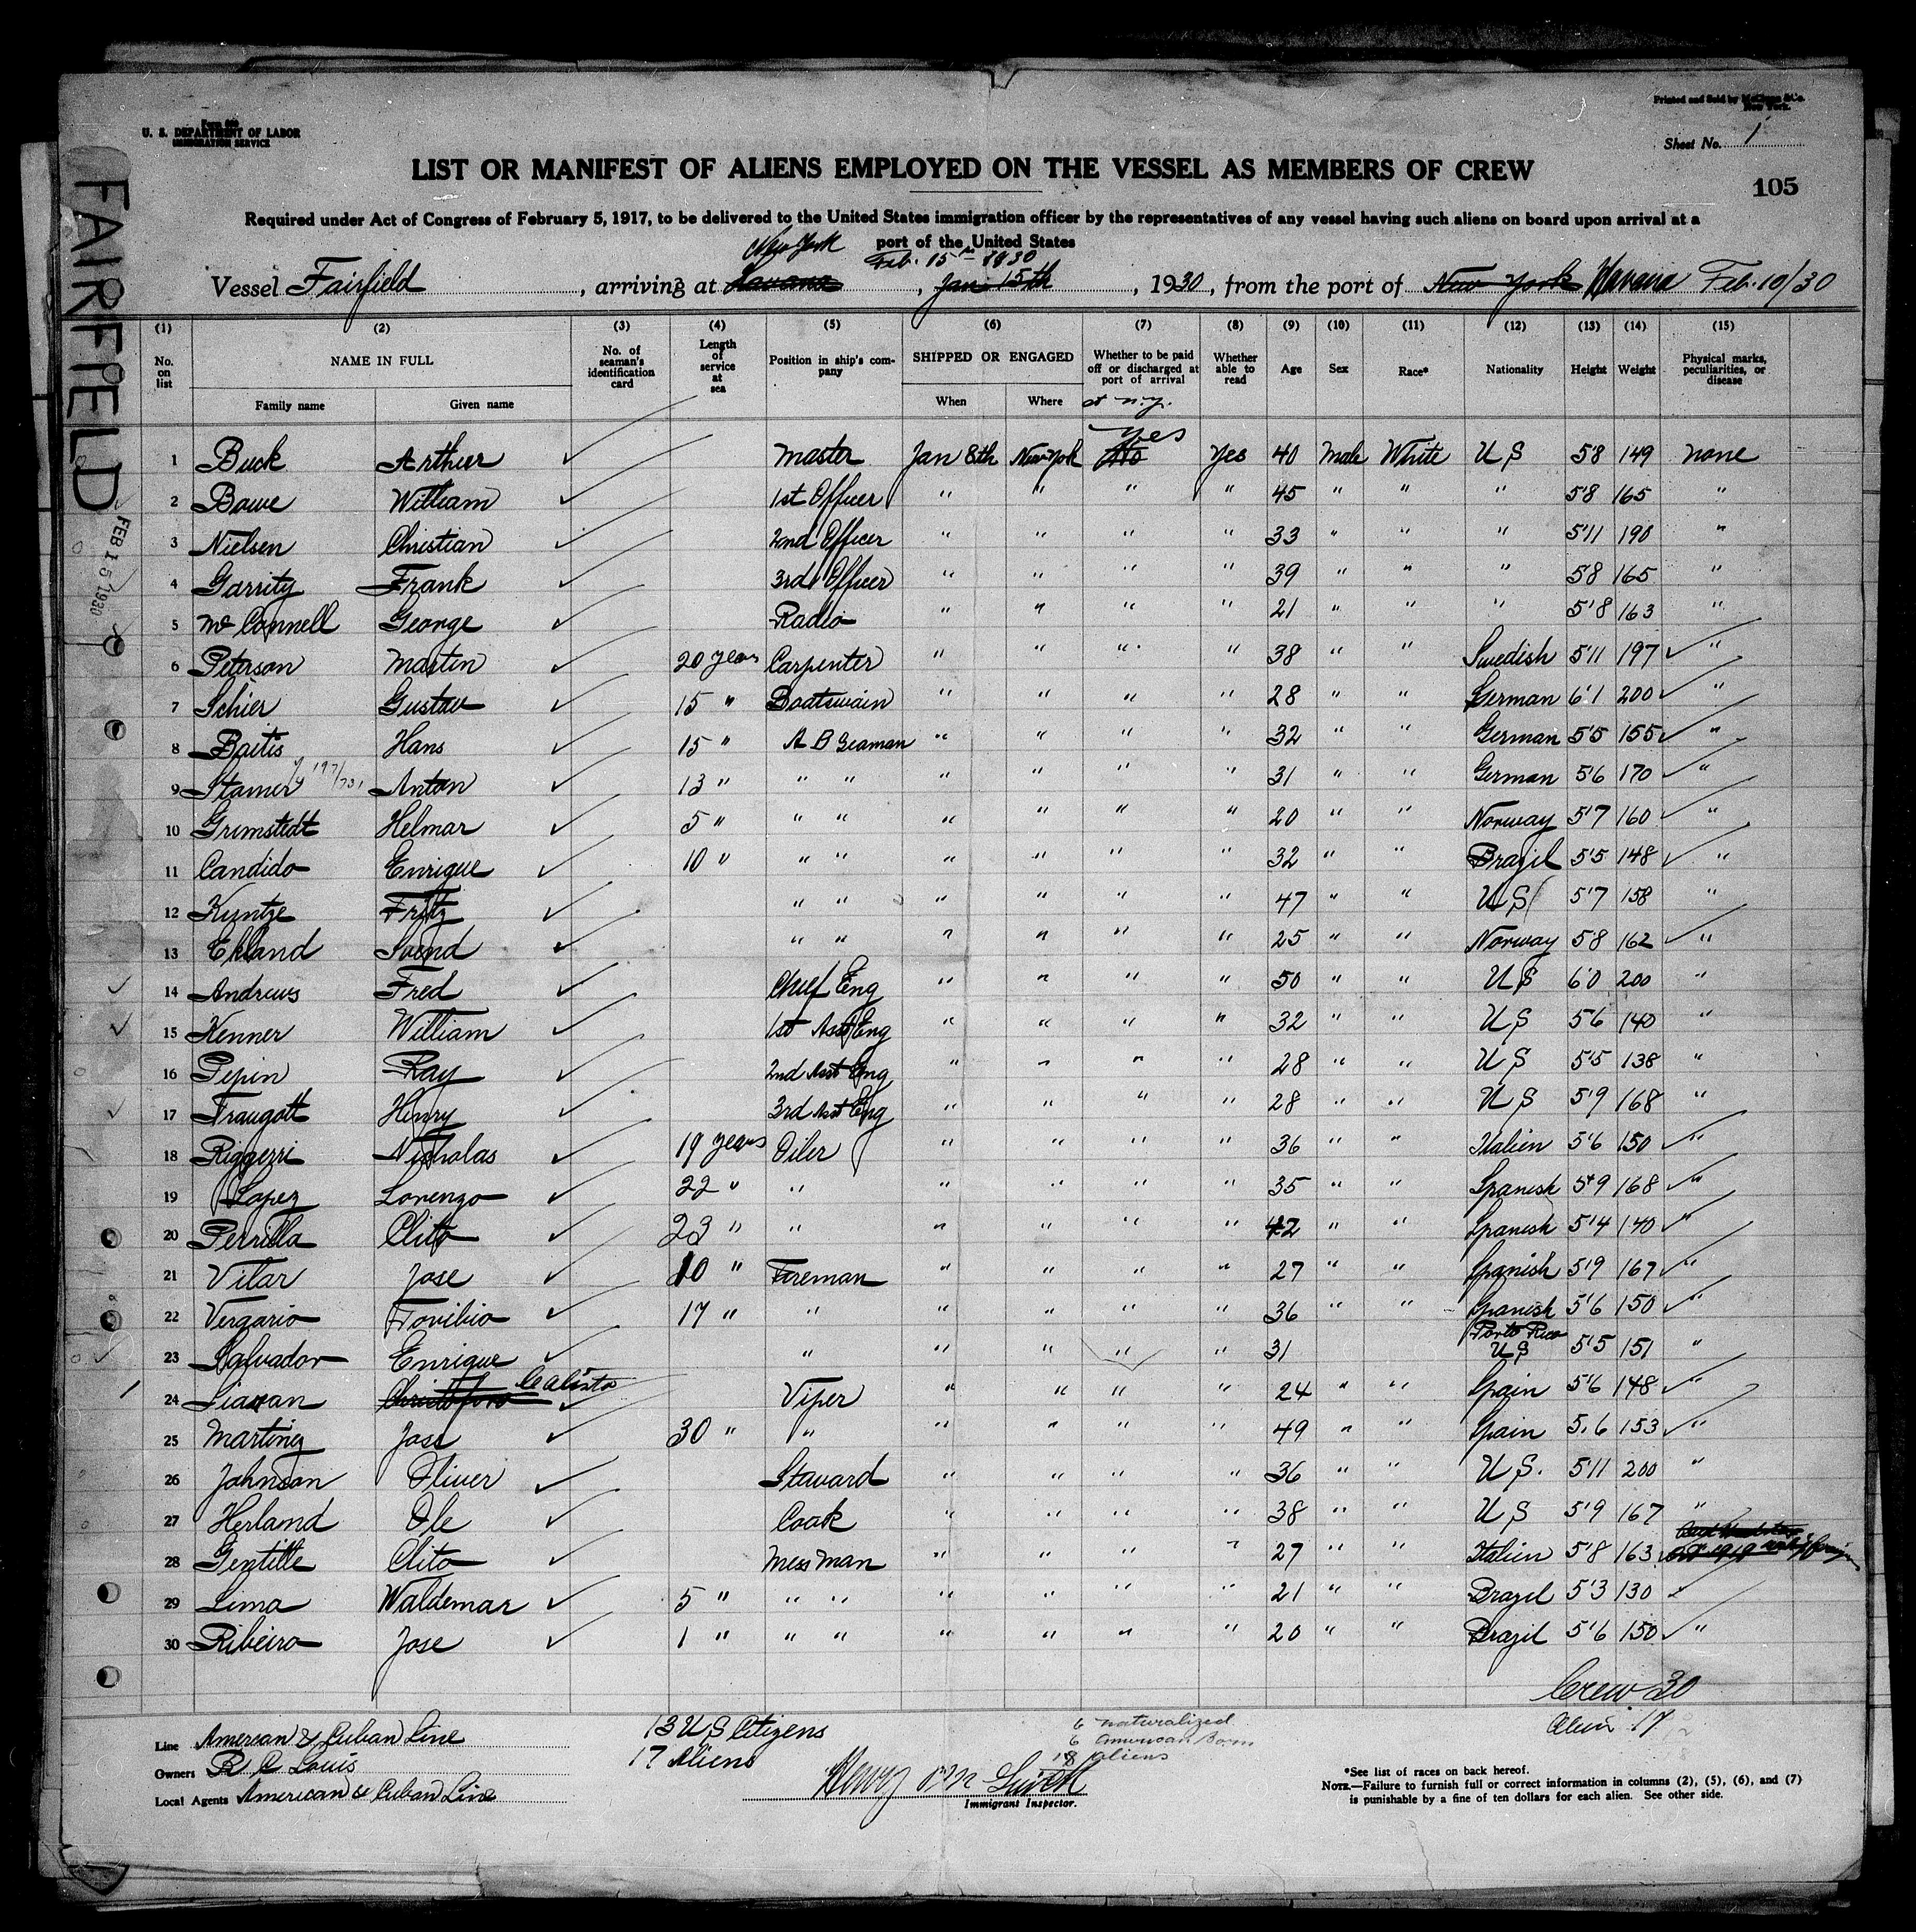 Form 689
U. S. DEPARTMENT OF LABOR
IMMIGRATION SERVICE
Printed and Sold by
New York.
Sheet No. 1
LIST OR MANIFEST OF ALIENS EMPLOYED ON THE VESSEL AS MEMBERS OF CREW
105
Required under Act of Congress of February 5, 1917, to be delivered to the United States immigration officer by the representatives of any vessel having such aliens on board upon arrival at a
port of the United States
New York Feb. 15th 1930
Vessel Fairfield, arriving at Havana, Jan 15th, 1930, from the port of New York Havana Feb. 10/30
FAIRFIELD
FEB 15 1930
(1) (2) (3) (4) (5) (6) (7) (8) (9) (10) (11) (12) (13) (14) (15)
No. on list NAME IN FULL No. of seaman's identification card Length of service at sea Position in ship's company SHIPPED OR ENGAGED Whether to be paid off or discharged at port of arrival Whether able to read Age Sex Race* Nationality Height Weight Physical marks, peculiarities, or disease
Family name Given name When Where at N.Y.
Yes
1 Buck Arthur Master Jan 8th New York No Yes 40 Male White U S 5'8 149 none
2 Bowe William 1st Officer " " " " 45 " " " 5'8 165 "
3 Nielsen Christian 2nd Officer " " " " 33 " " " 5'11 190 "
4 Garrity Frank 3rd Officer " " " " 39 " " " 5'8 165 "
5 McConnell George Radio " " " " 21 " " " 5'8 163 "
6 Peterson Martin 20 years Carpenter " " " " 38 " " Swedish 5'11 197 "
7 Schier Gustav 15 " Boatswain " " " " 28 " " German 6'1 200 "
8 Baitis Hans 15 " A B Seaman " " " " 32 " " German 5'5 155 "
9 Stamer Anton 13 " " " " " " " 31 " " German 5'6 170 "
10 Grimstedt Helmar 5 " " " " " " " 20 " " Norway 5'7 160 "
11 Candido Enrique 10 " " " " " " " 32 " " Brazil 5'5 148 "
12 Kuntze Fritz " " " " " " 47 " " U S 5'7 158 "
13 Ekland Svend " " " " " " 25 " " Norway 5'8 162 "
14 Andrews Fred Chief Eng " " " " 50 " " U S 6'0 200 "
15 Kenner William 1st Asst Eng " " " " 32 " " U S 5'6 140 "
16 Pepin Ray 2nd Asst Eng " " " " 28 " " U S 5'5 138 "
17 Traugott Henry 3rd Asst Eng " " " " 28 " " U S 5'9 168 "
18 Riggerri Nicholas 19 years Oiler " " " " 36 " " Italien 5'6 150 "
19 Lopez Lorenzo 22 " " " " " " 35 " " Spanish 5'9 168 "
20 Perrilla Clito 23 " " " " " " 42 " " Spanish 5'4 140 "
21 Vilar Jose 10 " Fireman " " " " 27 " " Spanish 5'9 167 "
22 Vergario Tovibio 17 " " " " " " 36 " " Spanish 5'6 150 "
Porto Rico
23 Salvador Enrique " " " " " 31 U S 5'5 151 "
Calisto
24 Liaxan Christoforo Viper " " " " 24 " " Spain 5'6 148 "
25 Martinez Jose 30 " " " " " " 49 " " Spain 5.6 153 "
26 Johnson Oliver Staward " " " " 36 " " U S. 5'11 200 "
27 Herland Ole Cook " " " " 38 " " U S 5'9 167 "
28 Gentille Clito Mess man " " " " 27 " " Italien 5'8 163
29 Lima Waldemar 5 " " " " " " " 21 " " Brazil 5'3 130
30 Ribeiro Jose 1 " " " " " " " 20 " " Brazil 5'6 150 "
Crew 30
Alien 17
Line American & Cuban Line
Owners R C Louis
Local Agents American & Cuban Line
13 U S Citizens
17 Aliens
6 naturalized
6 American born
18 aliens
Immigrant Inspector.
*See list of races on back hereof.
NOTE.—Failure to furnish full or correct information in columns (2), (5), (6), and (7)
is punishable by a fine of ten dollars for each alien. See other side.